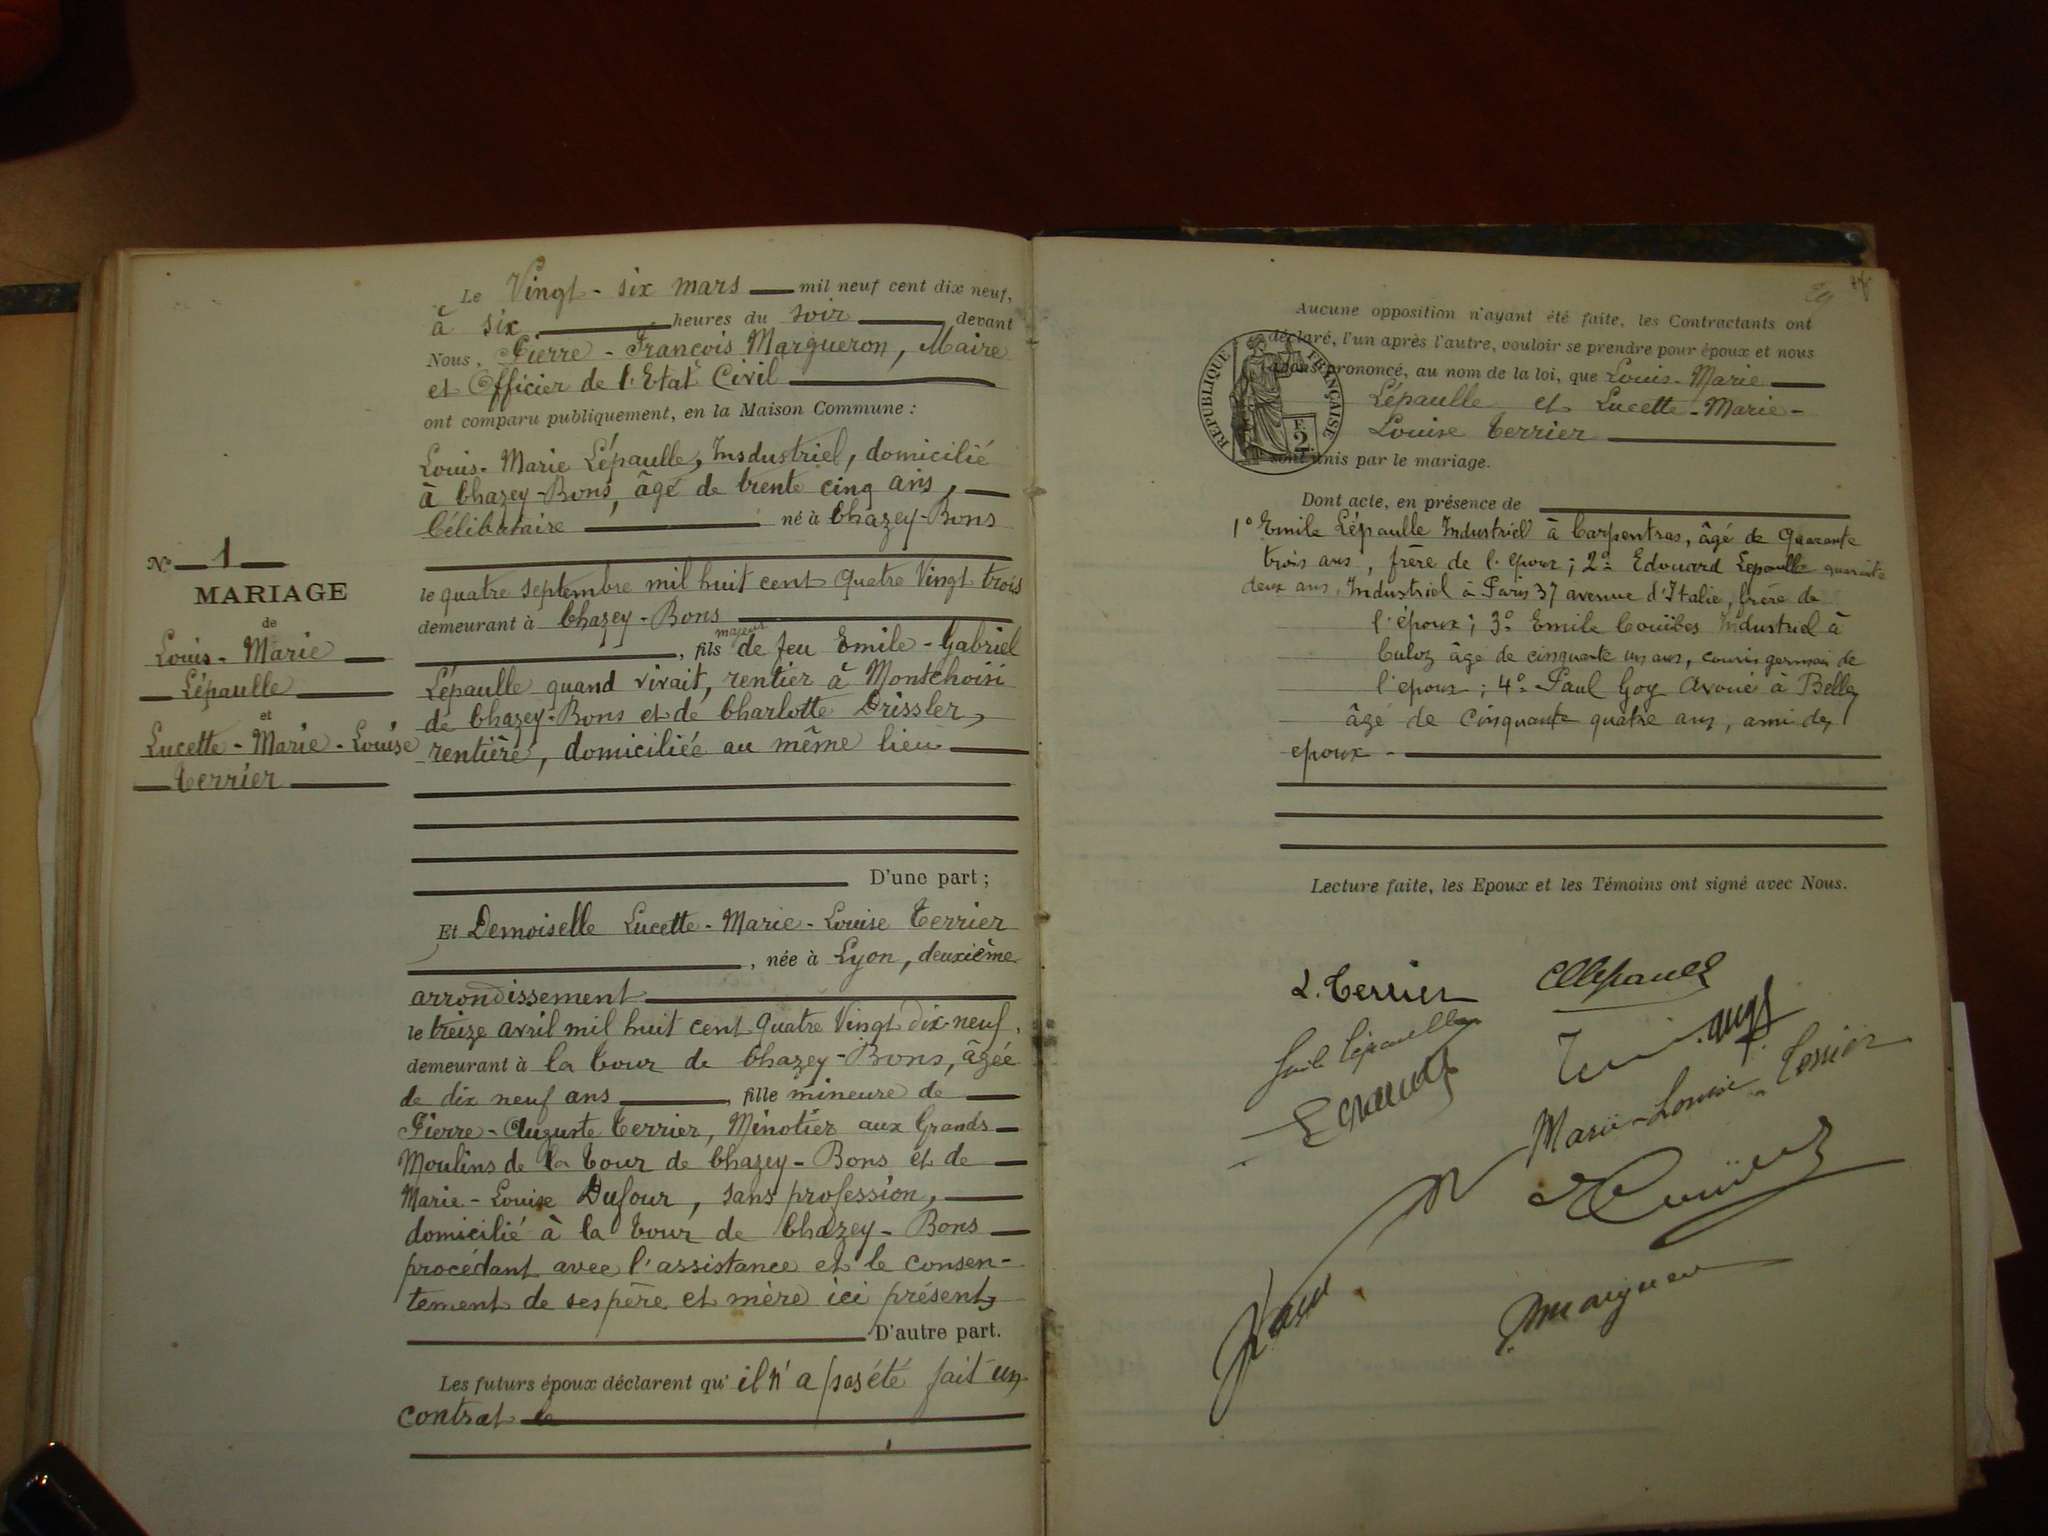 N° 1
MARIAGE
de
Louis-Marie
Lépaulle
et
Lucette-Marie-Louise
Terrier
Le Vingt-six mars mil neuf cent dix neuf,
à six heures du soir devant
Nous, Pierre-François Margueron, Maire
et Officier de l'Etat Civil
ont comparu publiquement, en la Maison Commune :
Louis-Marie Lépaulle, Insdustriel, domicilié
à Chazey-Bons, âgé de trente cinq ans,
Célibataire né à Chazey-Bons
le quatre septembre mil huit cent quatre Vingt trois
demeurant à Chazey-Bons
majeur
, fils de feu Emile-Gabriel
Lépaulle quand vivait, rentier à Montchoisi
de Chazey-Bons et de Charlotte Drissler,
rentière, domiciliée au même lieu
D'une part ;
Et Demoiselle Lucette-Marie-Louise Terrier
, née à Lyon, deuxième
arrondissement
le treize avril mil huit cent quatre Vingt dix-neuf,
demeurant à la Cour de Chazey-Bons, âgée
de dix neuf ans , fille mineure de
Pierre-Auguste Terrier, Minotier aux Grands
Moulins de la Cour de Chazey-Bons et de
Marie-Louise Dufour, sans profession,
domicilié à la Cour de Chazey-Bons
procédant avec l'assistance et le consen-
tement de ses père et mère ici présents
D'autre part.
Les futurs époux déclarent qu'il n'a pas été fait un
contrat
Aucune opposition n'ayant été faite, les Contractants ont
déclaré, l'un après l'autre, vouloir se prendre pour époux et nous
avons prononcé, au nom de la loi, que Louis-Marie
Lépaulle et Lucette-Marie-
Louise Terrier
sont unis par le mariage.
REPUBLIQUE FRANÇAISE
2
Dont acte, en présence de
1° Emile Lépaulle Industriel à Carpentras, âgé de Quarante
trois ans, frère de l'epoux ; 2° Edouard Lepaulle quarante
deux ans, Industriel à Paris 37 avenue d'Italie, frère de
l'époux ; 3° Emile Couïbes Industriel à
Culoz âgé de cinquante un ans, cousin germain de
l'epoux ; 4° Paul Goy Avoué à Belley
âgé de cinquante quatre ans, ami des
epoux -
Lecture faite, les Epoux et les Témoins ont signé avec Nous.
L. Terrier
Marie-Louise Terrier